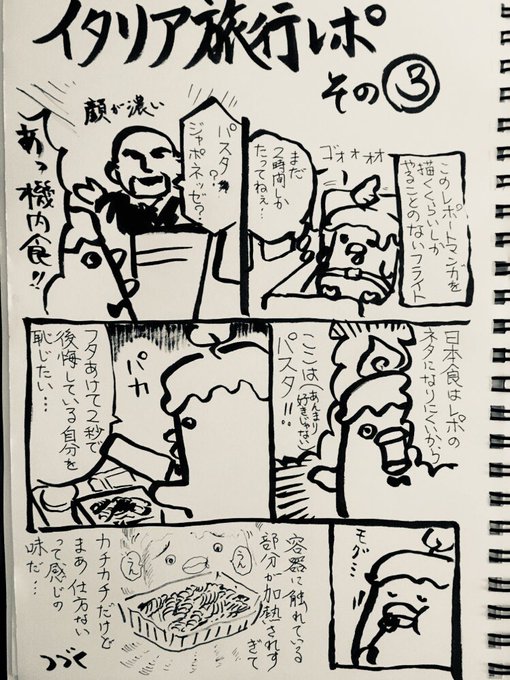 イタリア旅行レポ
その③
このレポートマンガを
描くくらいしか
やることのないフライト
ゴオォォォ
まだ
2時間しか
たってねぇ…
パスタ?
ジャポネッゼ?
顔が濃い
あっ機内食!!
日本食はレポの
ネタになりにくいから
ここは(あんまり
好きじゃない)
パスタ!!
パカ
フタあけて2秒で
後悔している自分を
恥じたい…
モグ…
容器に触れている
部分が加熱されす
ぎて
カチカチだけど
まあ仕方ない
って感じの
味だ…
つづく